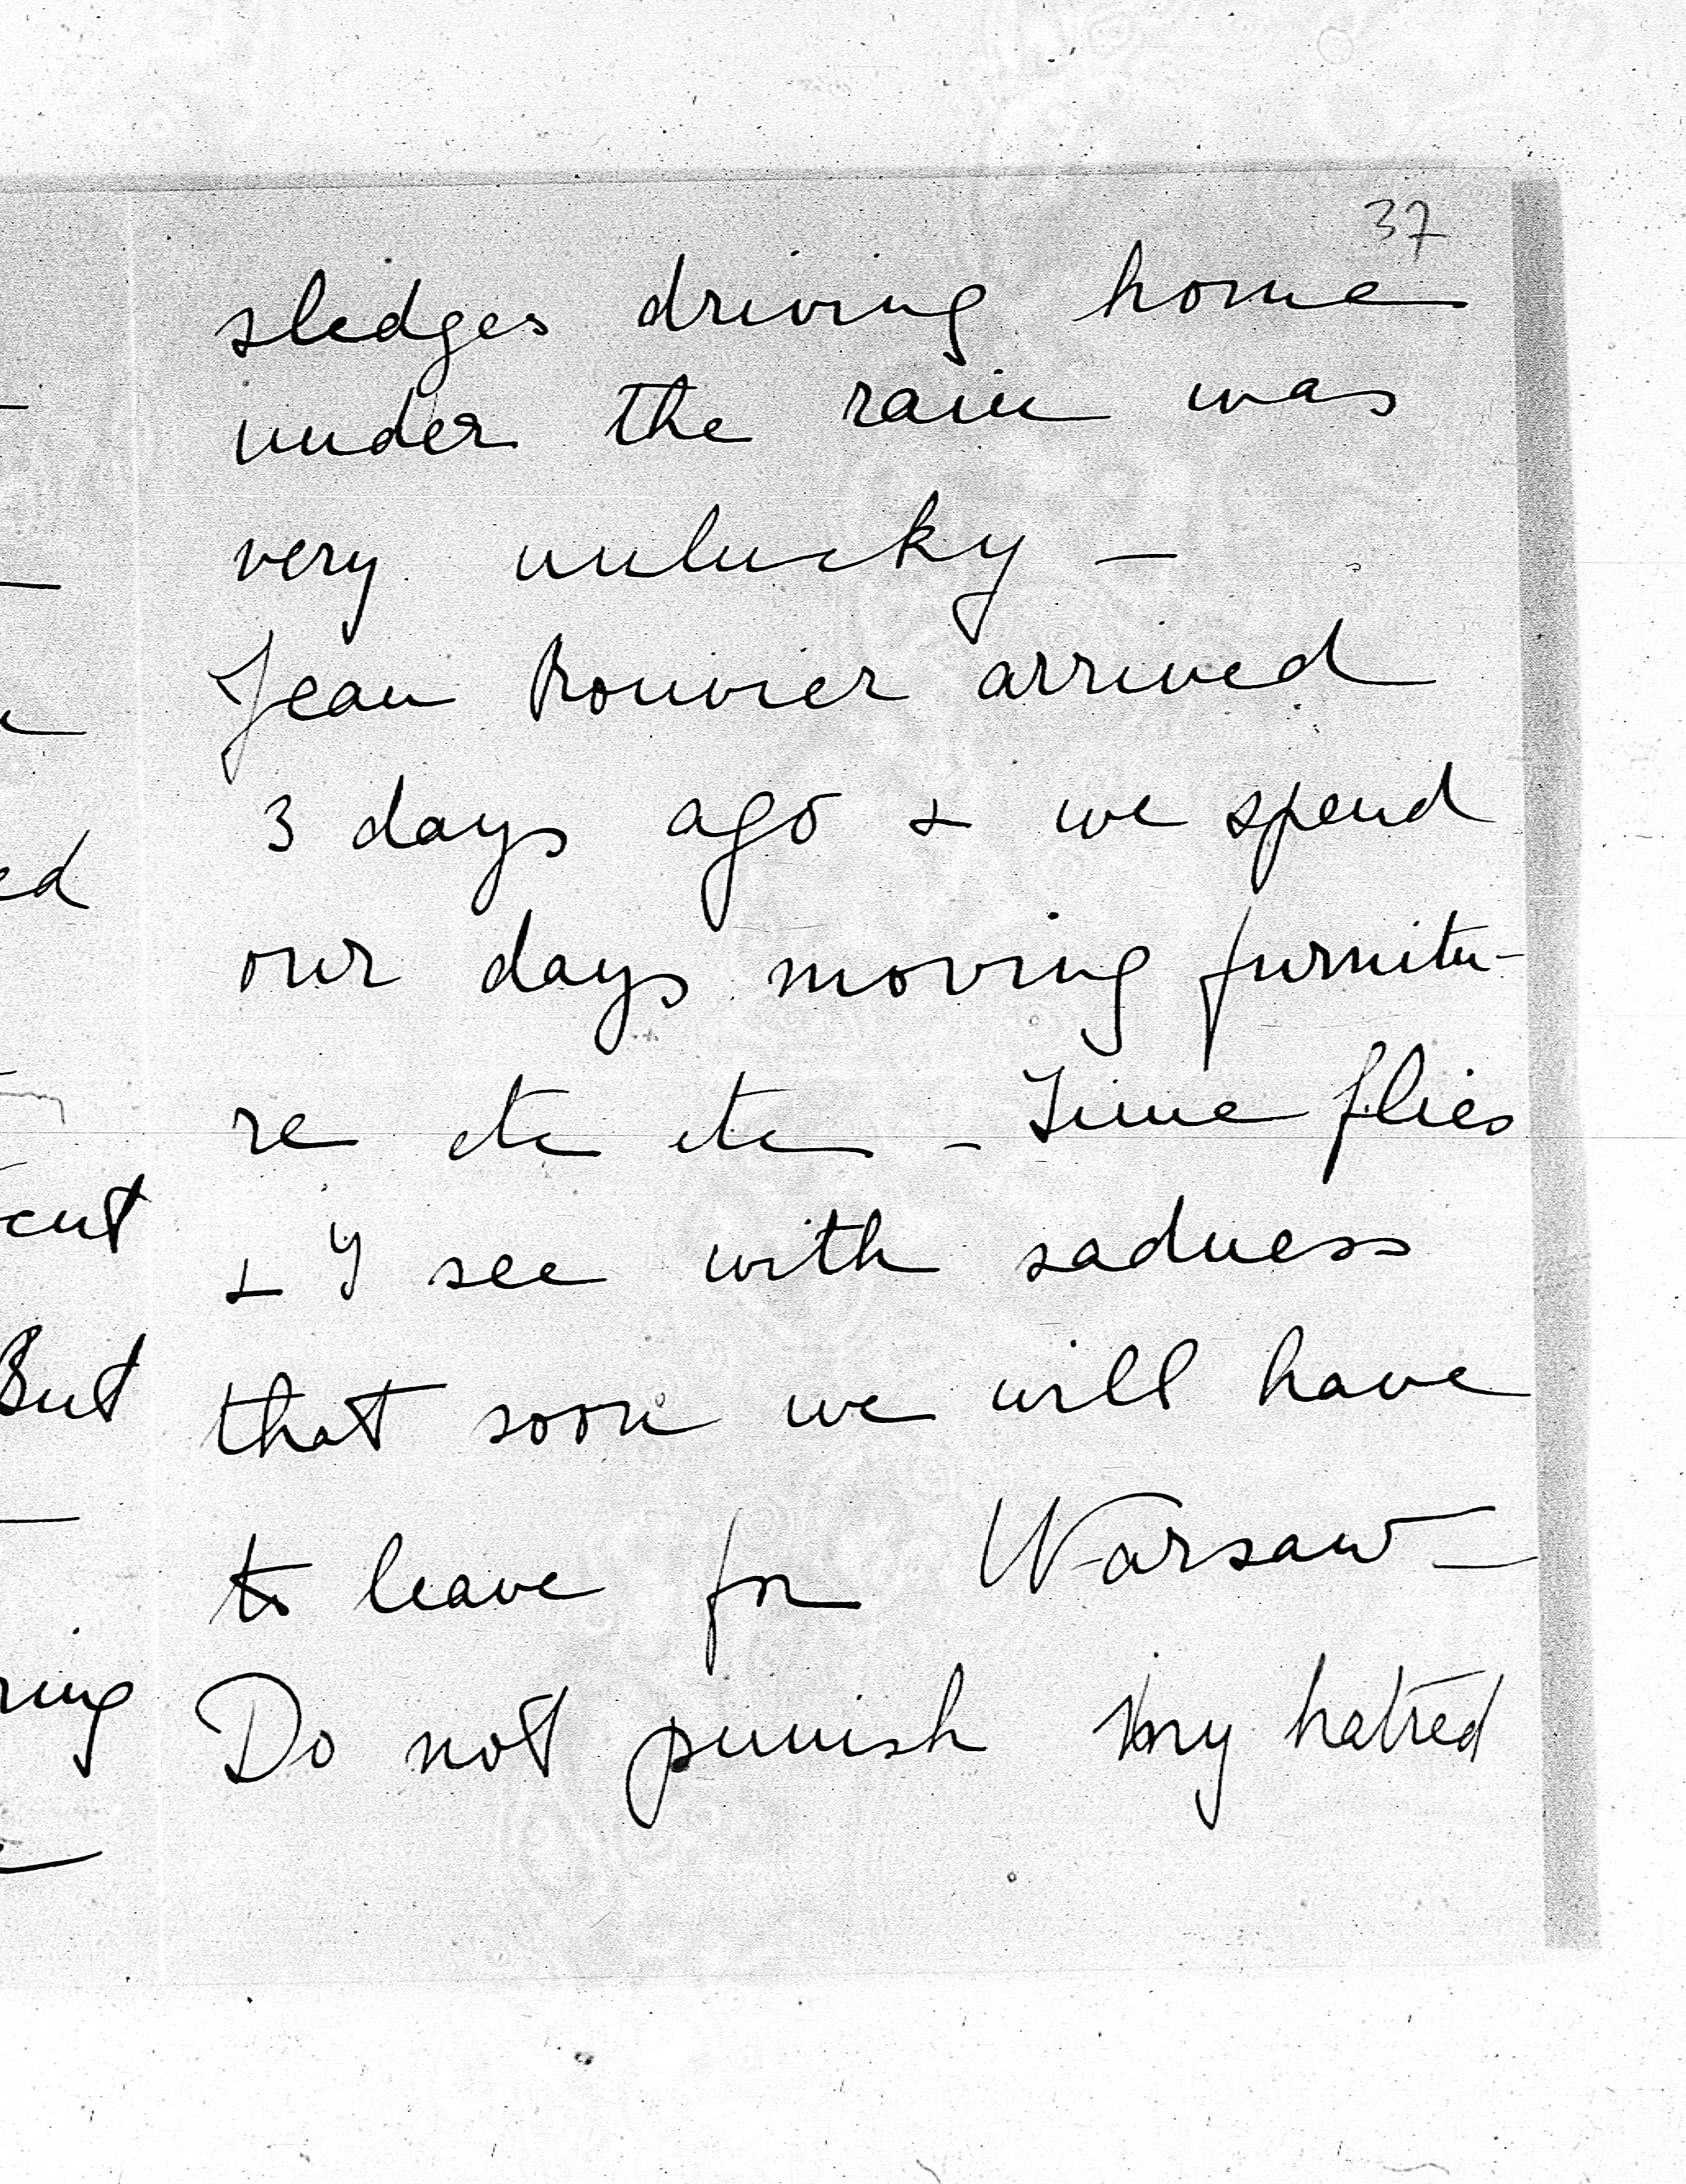 37
sledges driving home
under the rain was
very unlucky —
Jean Bouvier arrived
3 days ago & we spend
our days moving furnitu-
re etc etc - Time flies
& Y see with sadness
that soon we will have
to leave for Warsaw —
Do not punish my hatred
ed
But